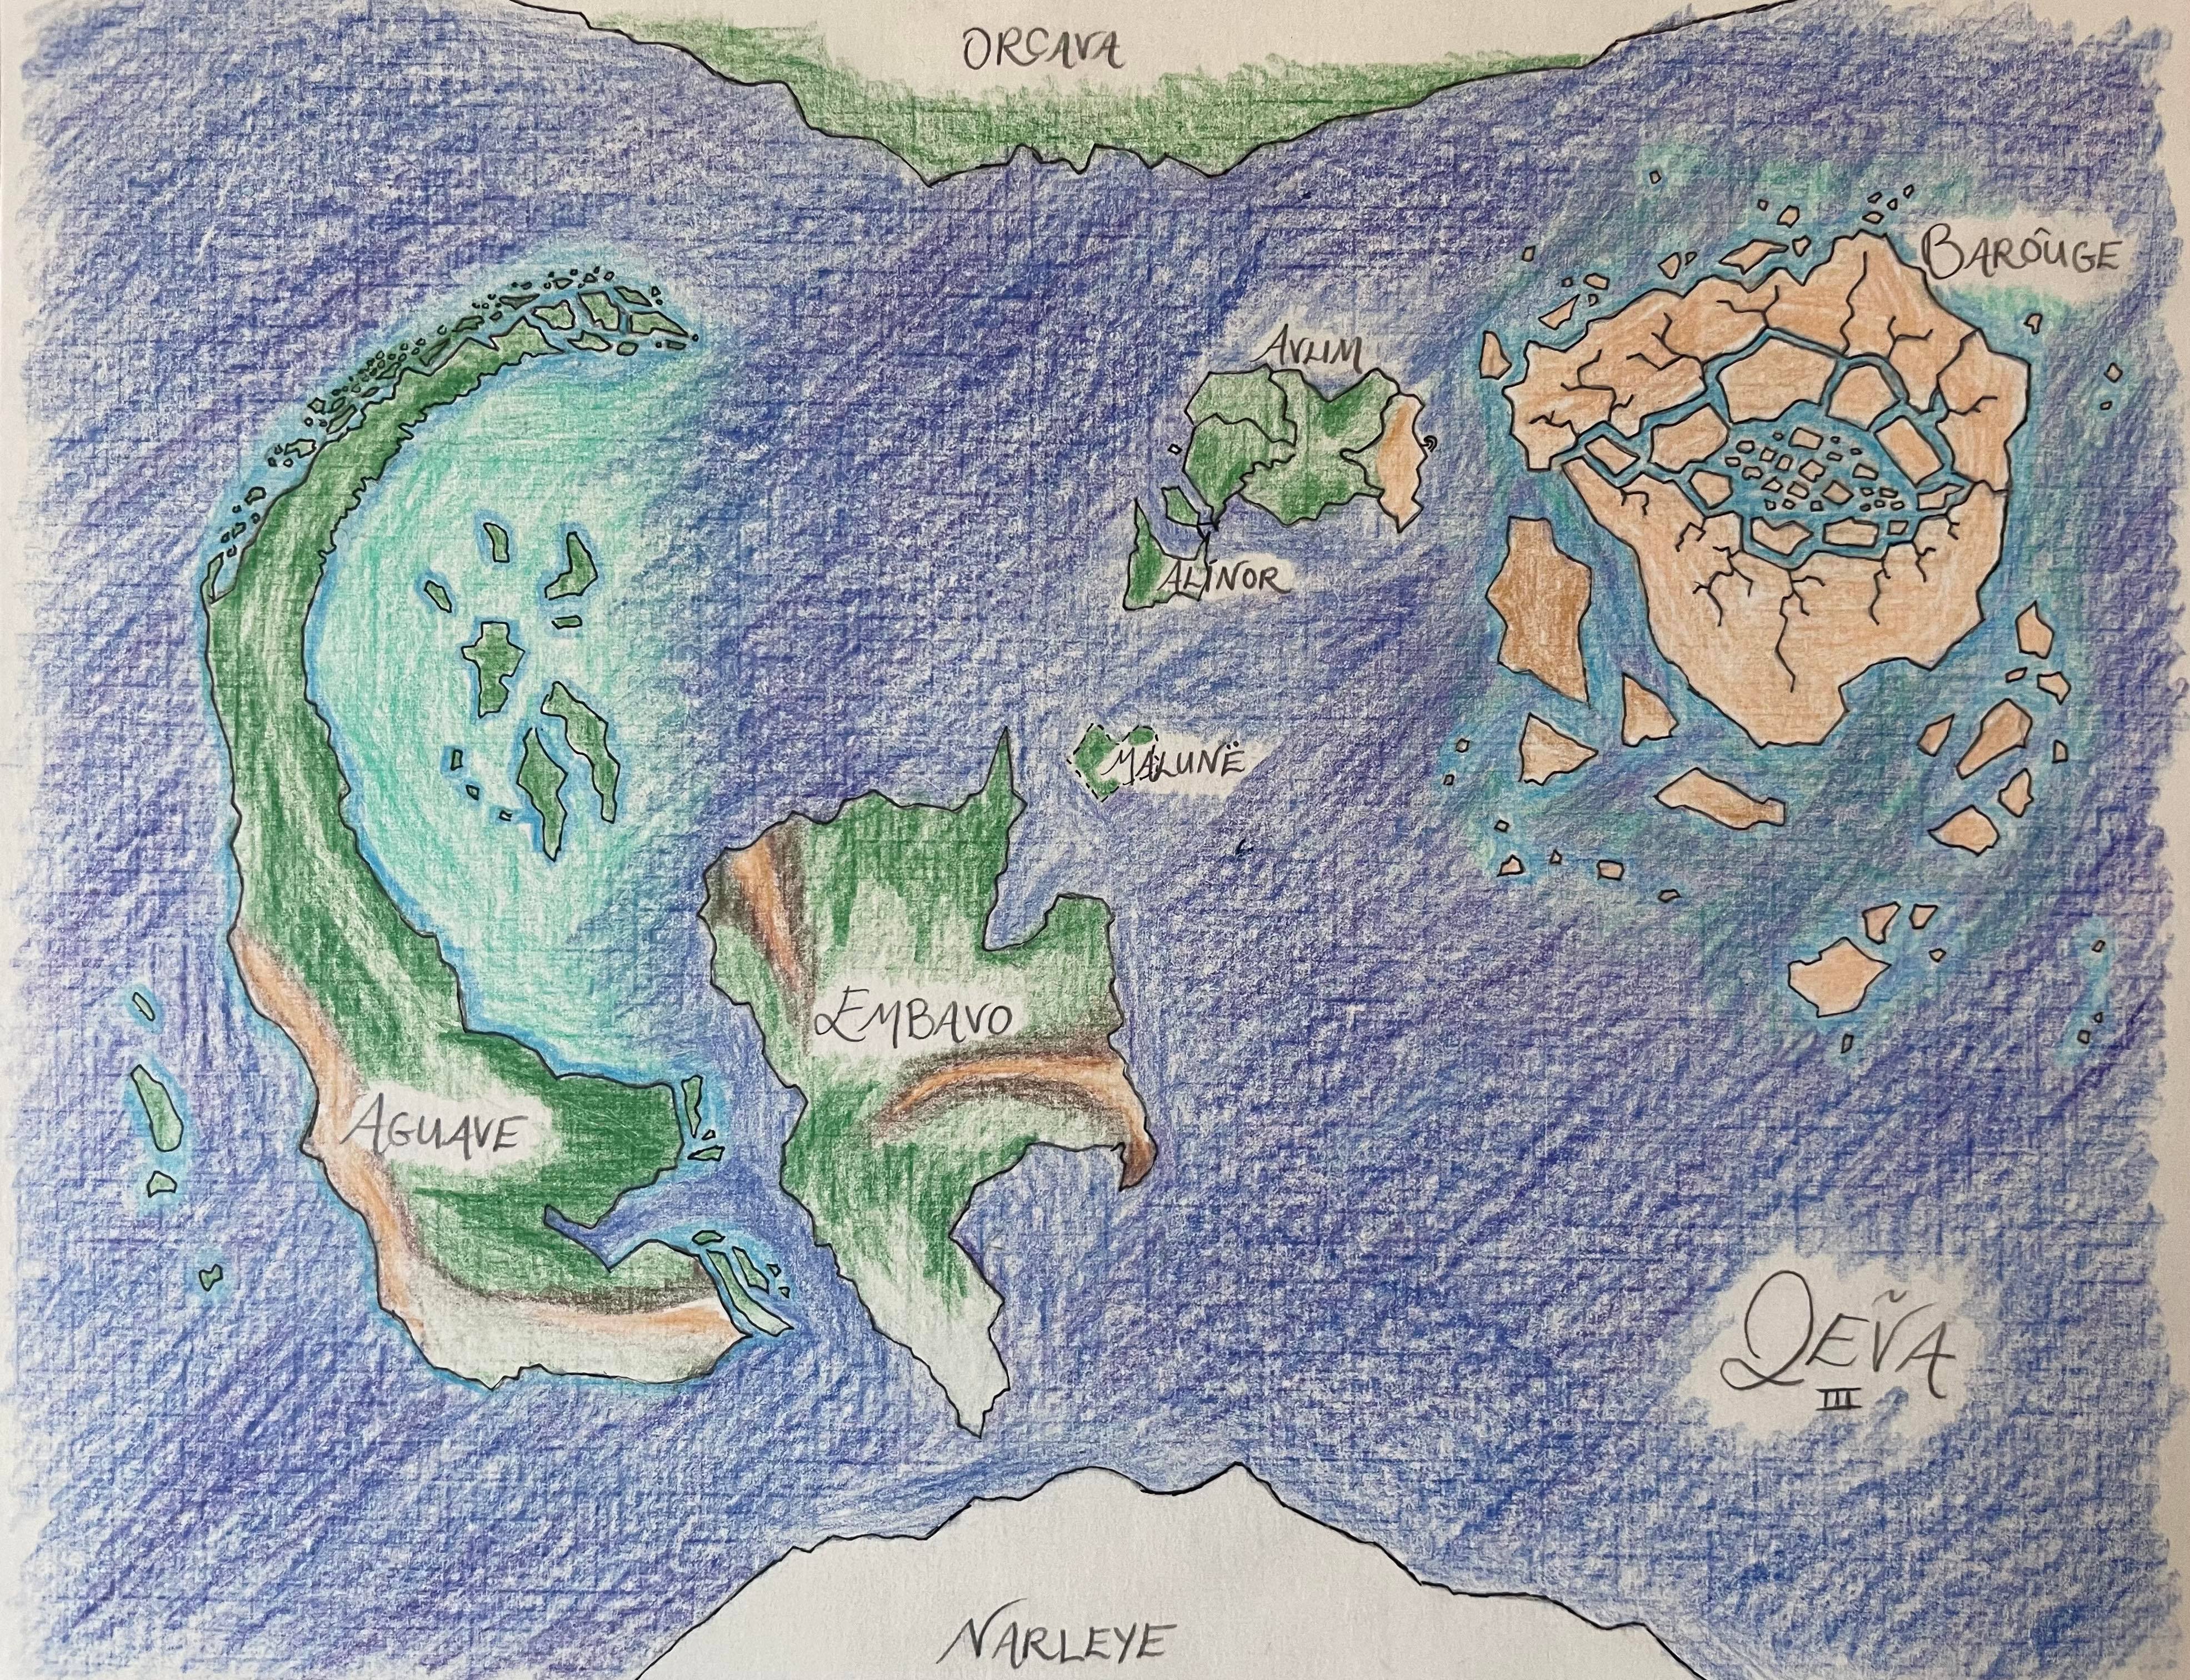 ORÇAVA
BARÔUGE
AVLIM
ALÍNOR
MALUNË
EMBAVO
AGUAVE
QEṼA
III
NARLEYE